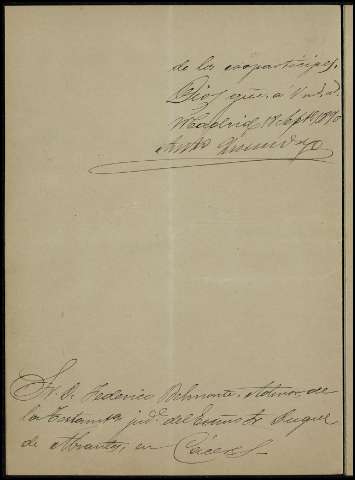 de los copartícipes.
Dios gue. á Vd.
Madrid 18 Sept. 1890
Anto
Sr. D. Federico Belmonte, Notario de
la Testamta. jud. del Excmo Sr Duque
de Abrantes, en Cáceres